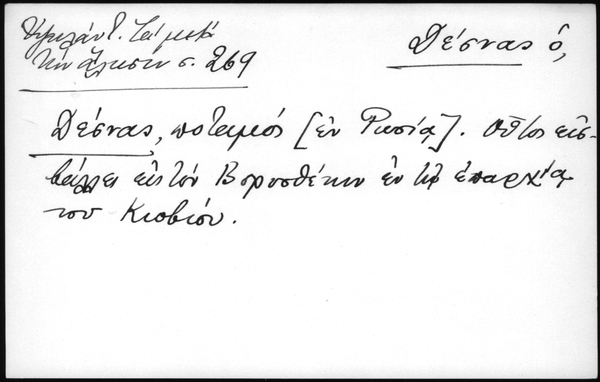 σ. 269
Δέσνας ὁ,
Δέσνας, ποταμός [ἐν Ρωσίᾳ]. οὗτος εἰσ-
βάλλει εἰς τὸν Βορυσθένην ἐν τῇ ἐπαρχίᾳ
του Κιοβίου.